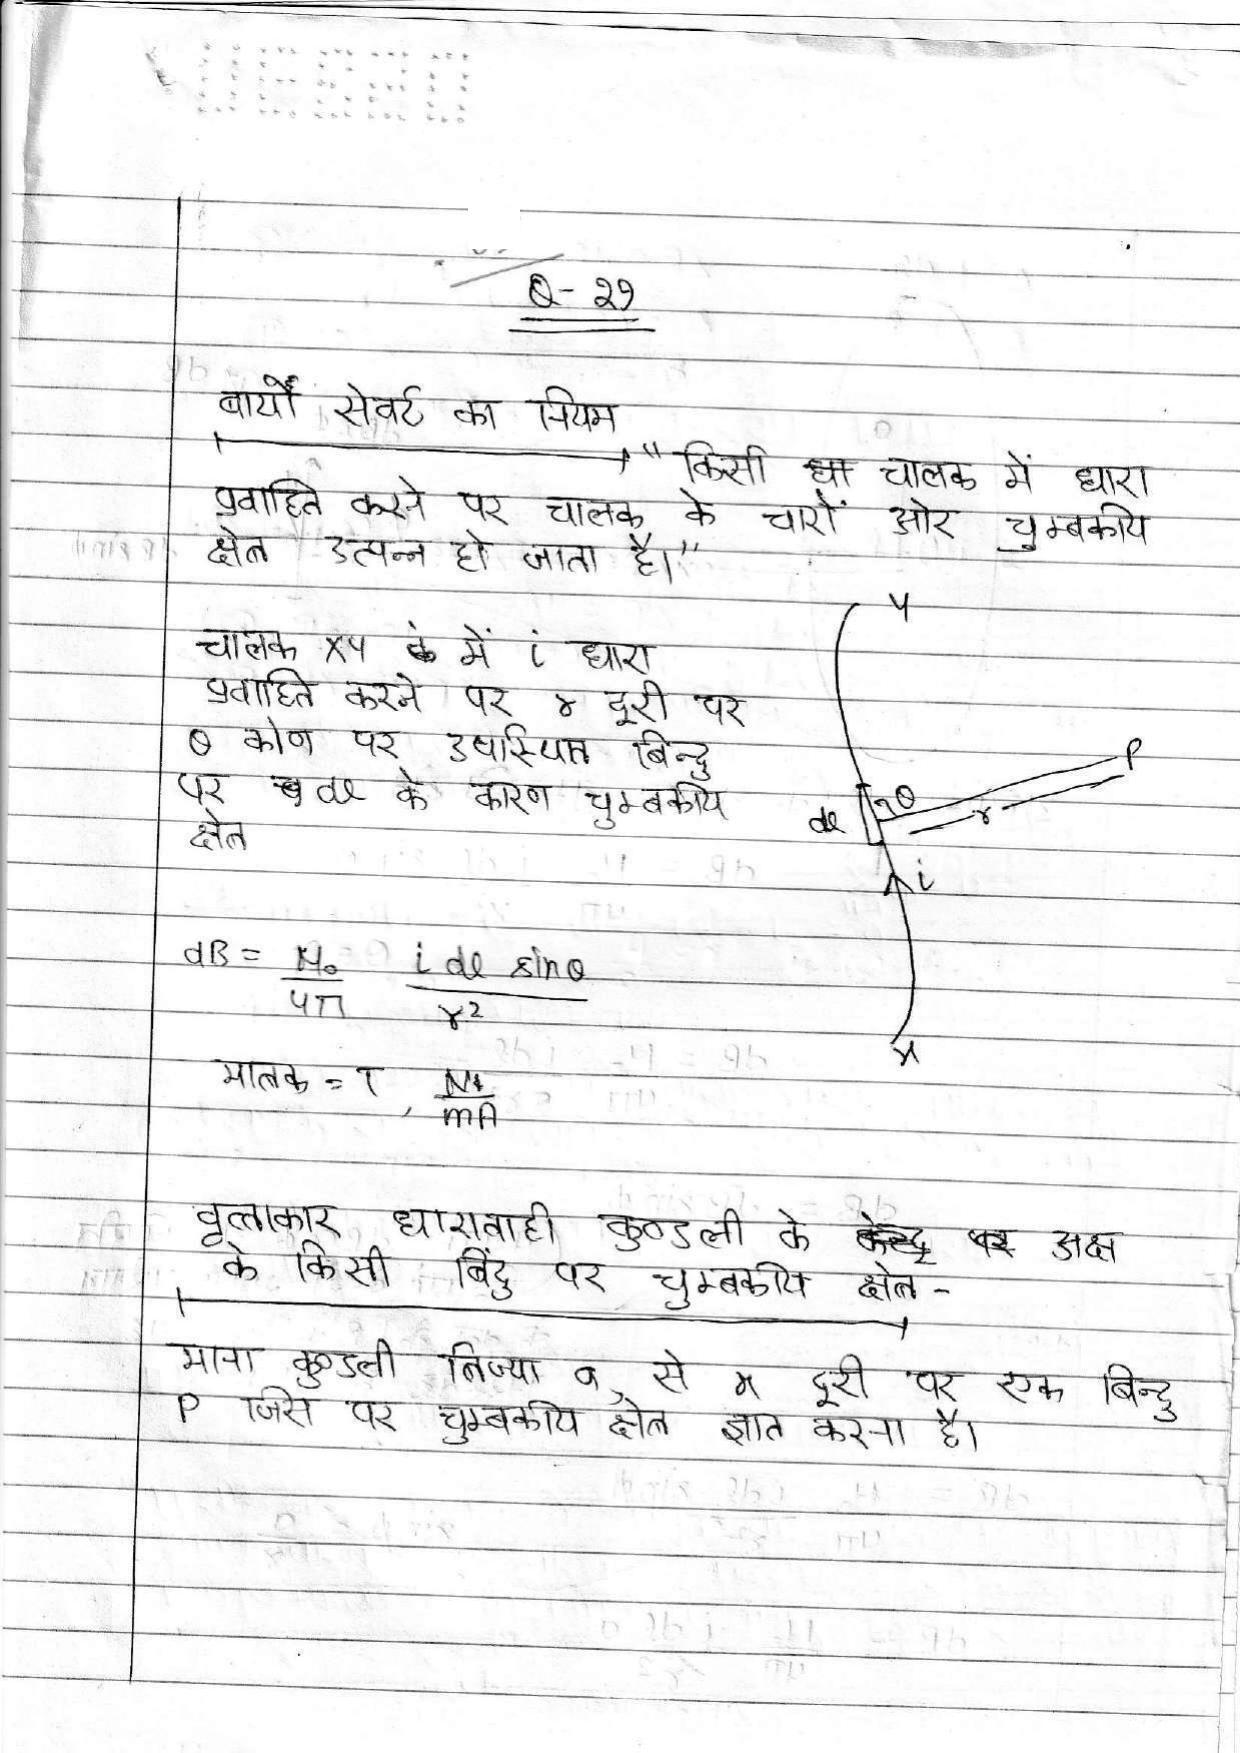 Q- 29
बायौं सेवर्ट का नियम
"किसी धा चालक में धारा
प्रवाहित करने पर चालक के चारों ओर चुम्बकीय
क्षेत्र उत्पन्न हो जाता है।"
चालक XY के में i धारा
प्रवाहित करने पर r दूरी पर
θ कोण पर उपस्थित बिन्दु
पर dl के कारण चुम्बकीय
क्षेत्र
Y
P
dl θ r
i
X
dB = μ₀/4π i dl sinθ/r²
मात्रक = T, N/mA
वृत्ताकार धारावाही कुण्डली के केन्द्र पर अक्ष
के किसी बिंदु पर चुम्बकीय क्षेत्र -
माना कुण्डली त्रिज्या a, से x दूरी पर एक बिन्दु
P जिस पर चुम्बकीय क्षेत्र ज्ञात करना है।